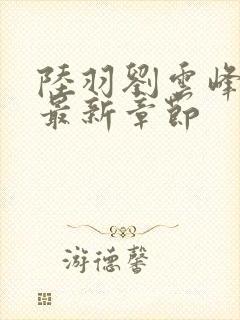 陸羽劉雲峰
最新章節
游德馨